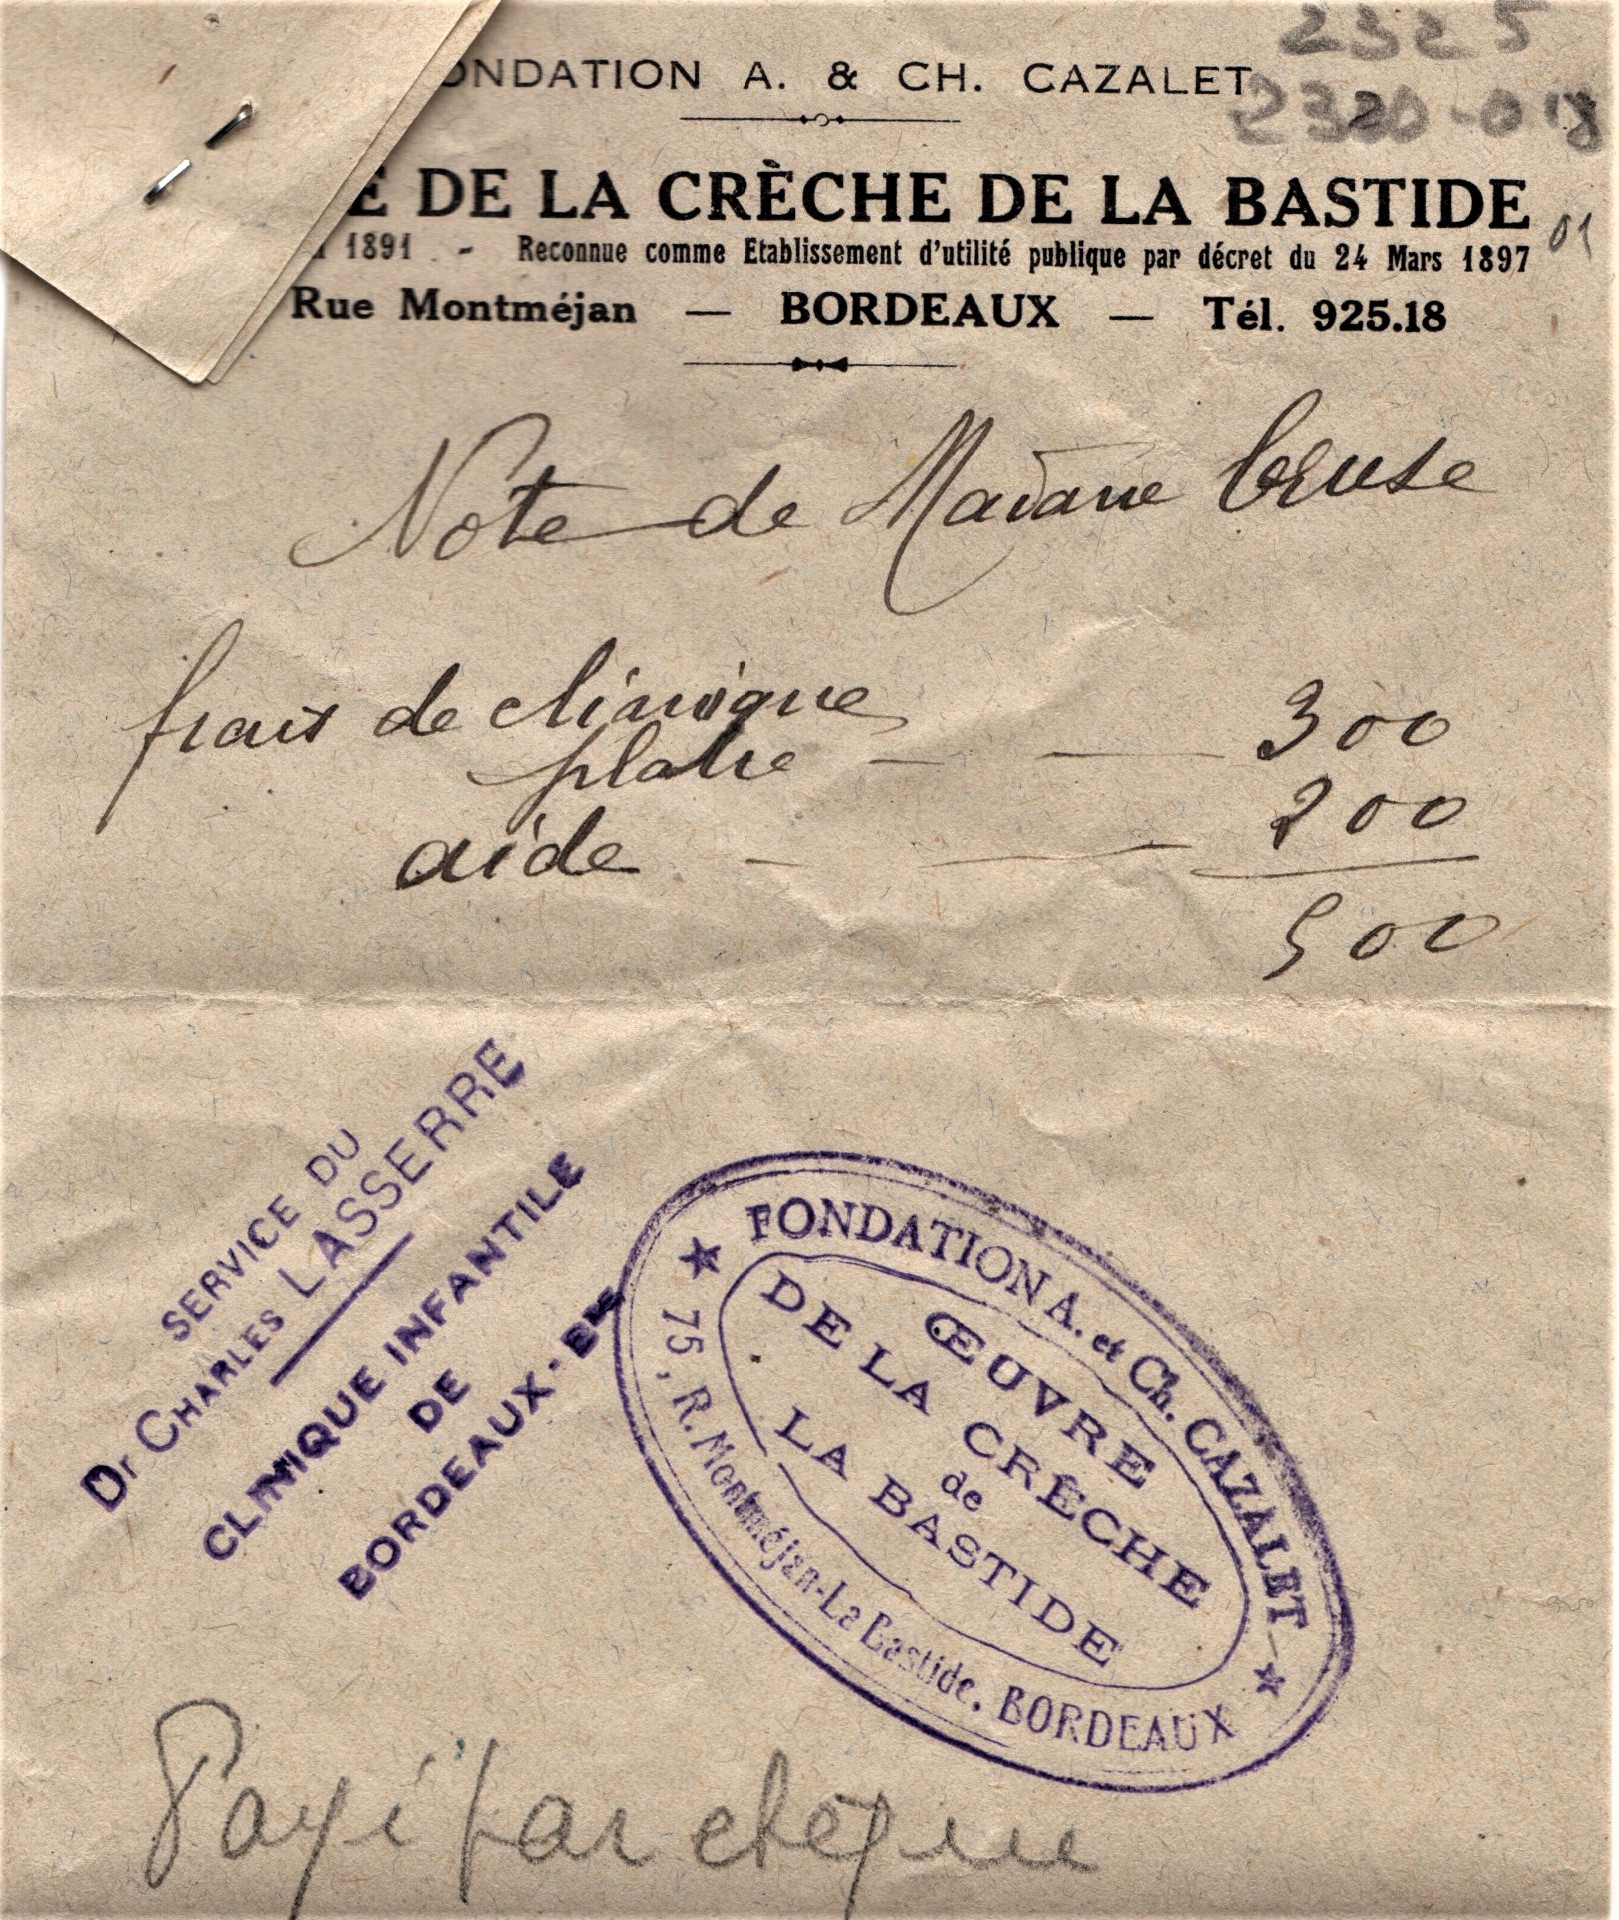 2325
ONDATION A. & CH. CAZALET
2320-018
E DE LA CRÈCHE DE LA BASTIDE
01
1891 - Reconnue comme Etablissement d'utilité publique par décret du 24 Mars 1897
Rue Montméjan — BORDEAUX — Tél. 925.18
Note de Madame Cruse
frais de clinique
platre — — 300
aide — — 200
500
SERVICE DU
Dr CHARLES LASSERRE
CLINIQUE INFANTILE
DE
BORDEAUX-Bde
★ FONDATION A. et Ch. CAZALET ★
ŒUVRE
DE LA CRÊCHE
de
LA BASTIDE
75, R. Montméjan-La Bastide. BORDEAUX
Payé par chèque